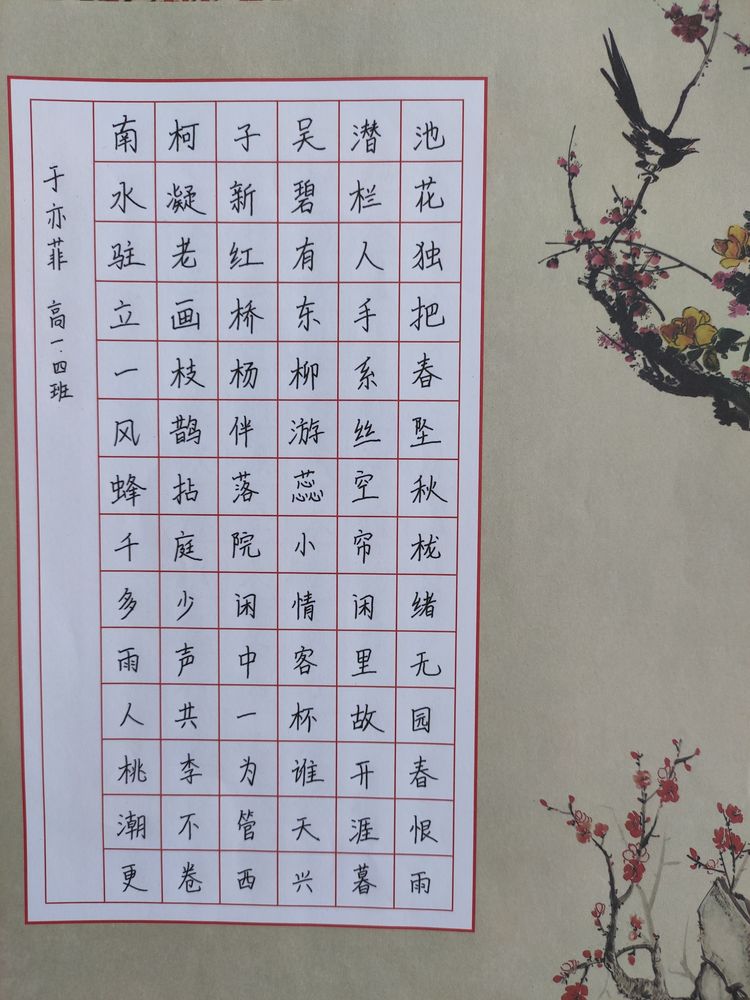 南柯子吴潜池
水凝新碧栏花
驻老红有人独
立画桥东手把
一枝杨柳系春
风鹊伴游丝坠
蜂拈落蕊空秋
千庭院小帘栊
多少闲情闲绪
雨声中客里无
人共一杯故园
桃李为谁开春
潮不管天涯恨
更卷西兴暮雨
于亦菲 高一.四班